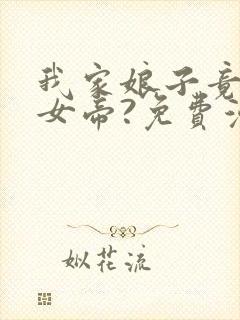 我家娘子竟
女帝?免費
姒花流